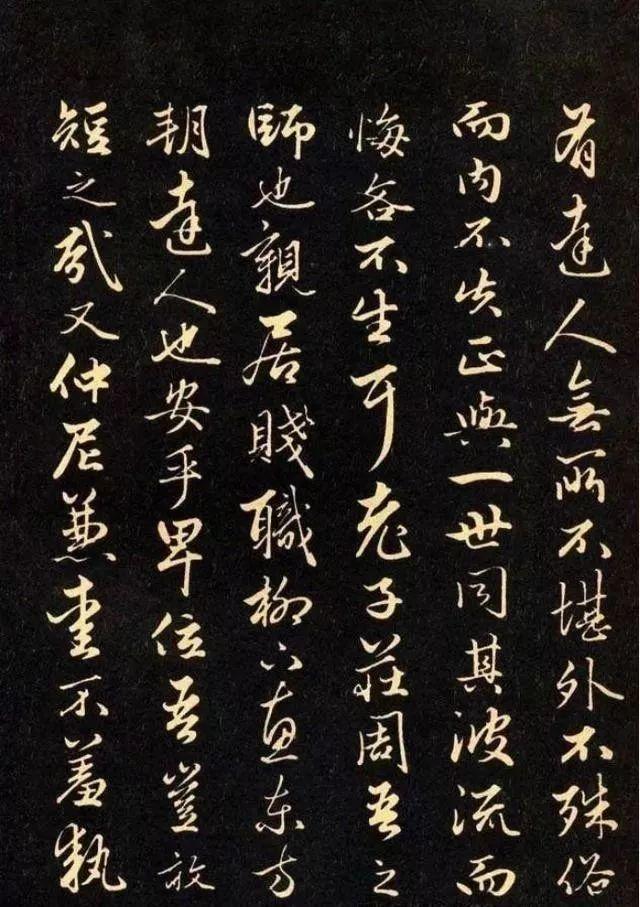 有達人無所不堪外不殊俗
而内不失正與一世同其波流而
悔吝不生耳老子莊周吾之
師也親居賤職柳下惠東方
朔達人也安乎卑位吾豈敢
短之哉又仲尼兼愛不羞執